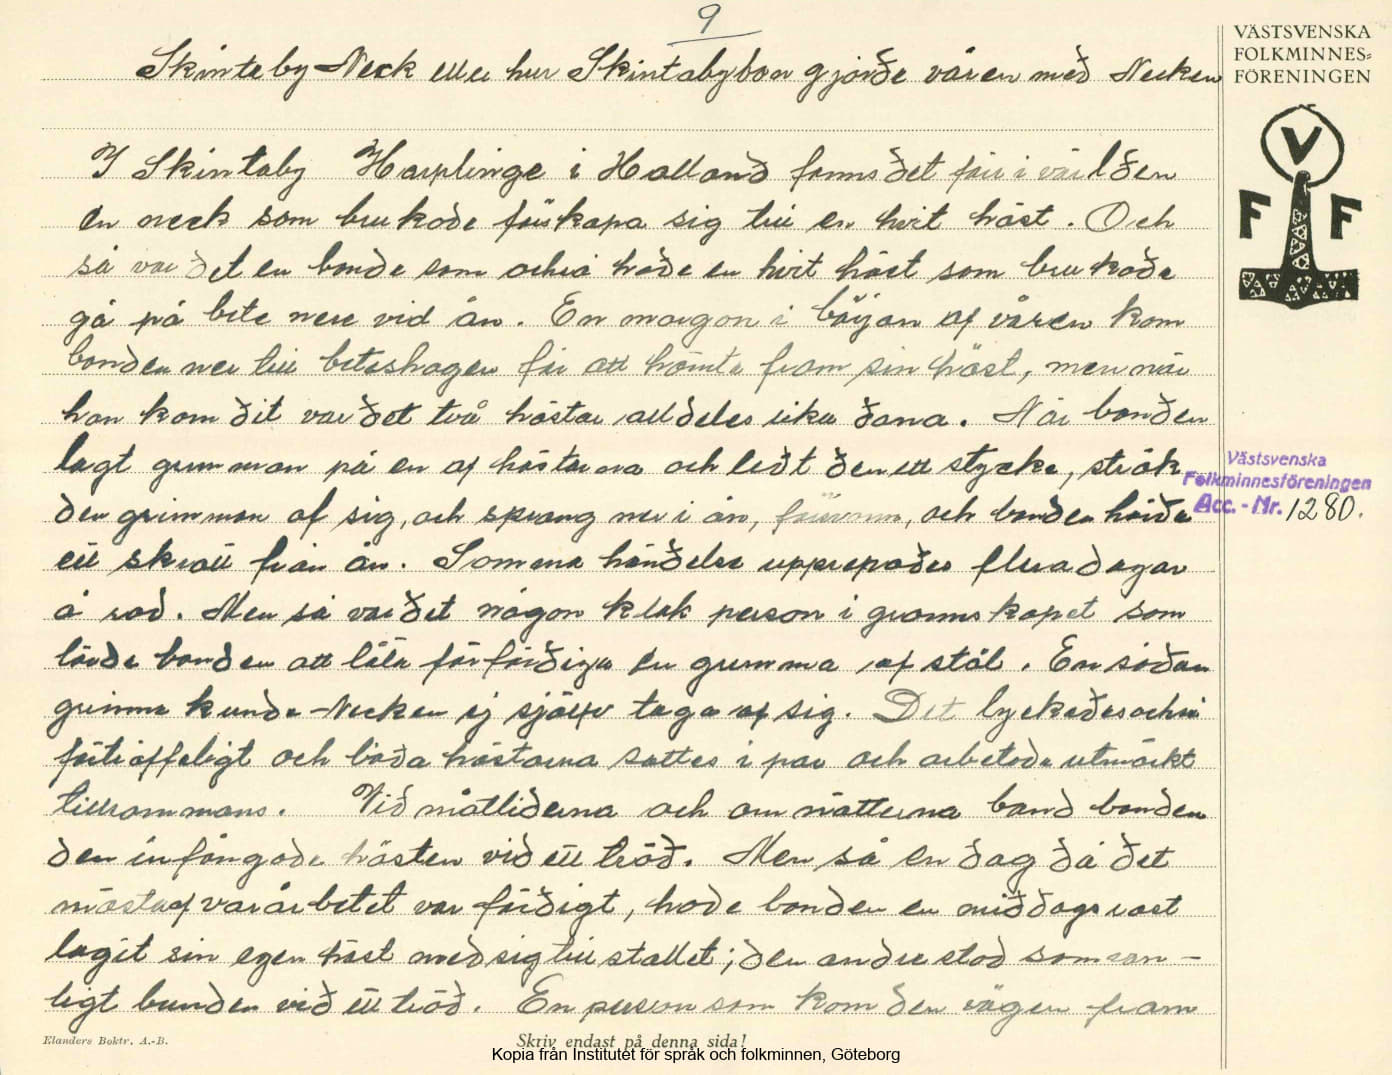 9
Skinteby Neck eller hur Skintabybon gjorde våren med Necken
I Skintaby Harplinge i Halland fanns det förr i världen
en neck som brukade förskapa sig till en hvit häst. Och
så var det en bonde som också hade en hvit häst som brukade
gå på bete nere vid ån. En morgon i början af våren kom
bonden ner till beteshagen för att hämta fram sin häst, men när
han kom dit var det två hästar alldeles lika dana. När bonden
lagt grimman på en af hästarna och ledt den ett stycke, strök
den grimman af sig, och sprang ner i ån, försvann, och bonden hörde
ett skratt från ån. Samma händelse upprepades flera dagar
å rad. Men så var det någon klok person i grannskapet som
lärde bonden att låta förfärdiga en grimma af stål. En sådan
grimma kunde Necken ej själfv taga af sig. Det lyckades också
förträffeligt och båda hästarna sattes i par och arbetade utmärkt
tillsammans. Vid måltiderna och om nätterna band bonden
den infångade hästen vid ett träd. Men så en dag då det
mästa af vårarbetet var färdigt, hade bonden en middagsrast
tagit sin egen häst med sig till stallet; den andre stod somvan-
ligt bunden vid ett träd. En person som kom den vägen fram
Elanders Boktr. A.-B.
Skriv endast på denna sida!
Kopia från Institutet för språk och folkminnen, Göteborg
VÄSTSVENSKA
FOLKMINNES-
FÖRENINGEN
V
F F
Västsvenska
Folkminnesföreningen
Acc. - Nr. 1280.